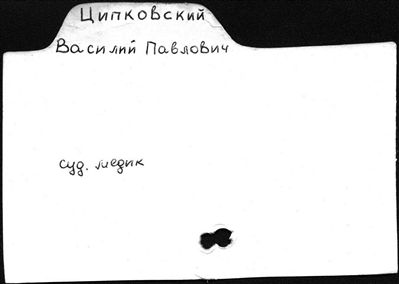 Ципковский
Василий Павлович
суд. медик